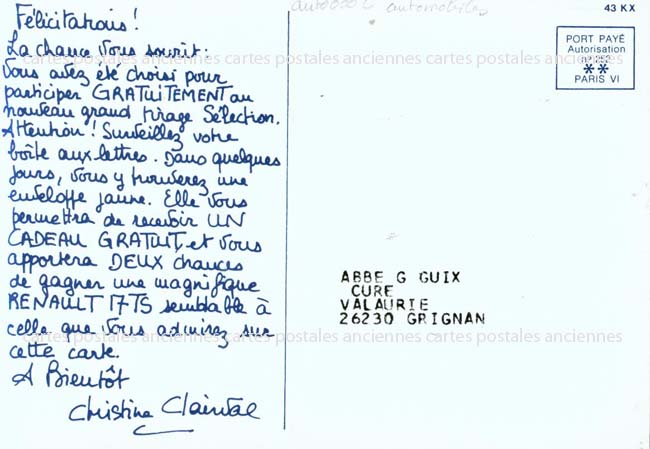 Félicitations !
La chance vous sourit :
vous avez été choisi pour
participer GRATUITEMENT au
nouveau grand tirage Sélection.
Attention ! Surveillez votre
boîte aux lettres. Dans quelques
jours, vous y trouverez une
enveloppe jaune. Elle vous
permettra de recevoir UN
CADEAU GRATUIT, et vous
apportera DEUX chances
de gagner une magnifique
RENAULT 17TS semblable à
celle que vous admirez sur
cette carte.
A Bientôt
Christina Clairval
automobiles
43 KX
PORT PAYÉ
Autorisation
**
PARIS VI
ABBE G GUIX
CURE
VALAURIE
26230 GRIGNAN
cartes postales anciennes cartes postales anciennes cartes postales anciennes
cartes postales anciennes cartes postales anciennes cartes postales anciennes
cartes postales anciennes cartes postales anciennes cartes postales anciennes